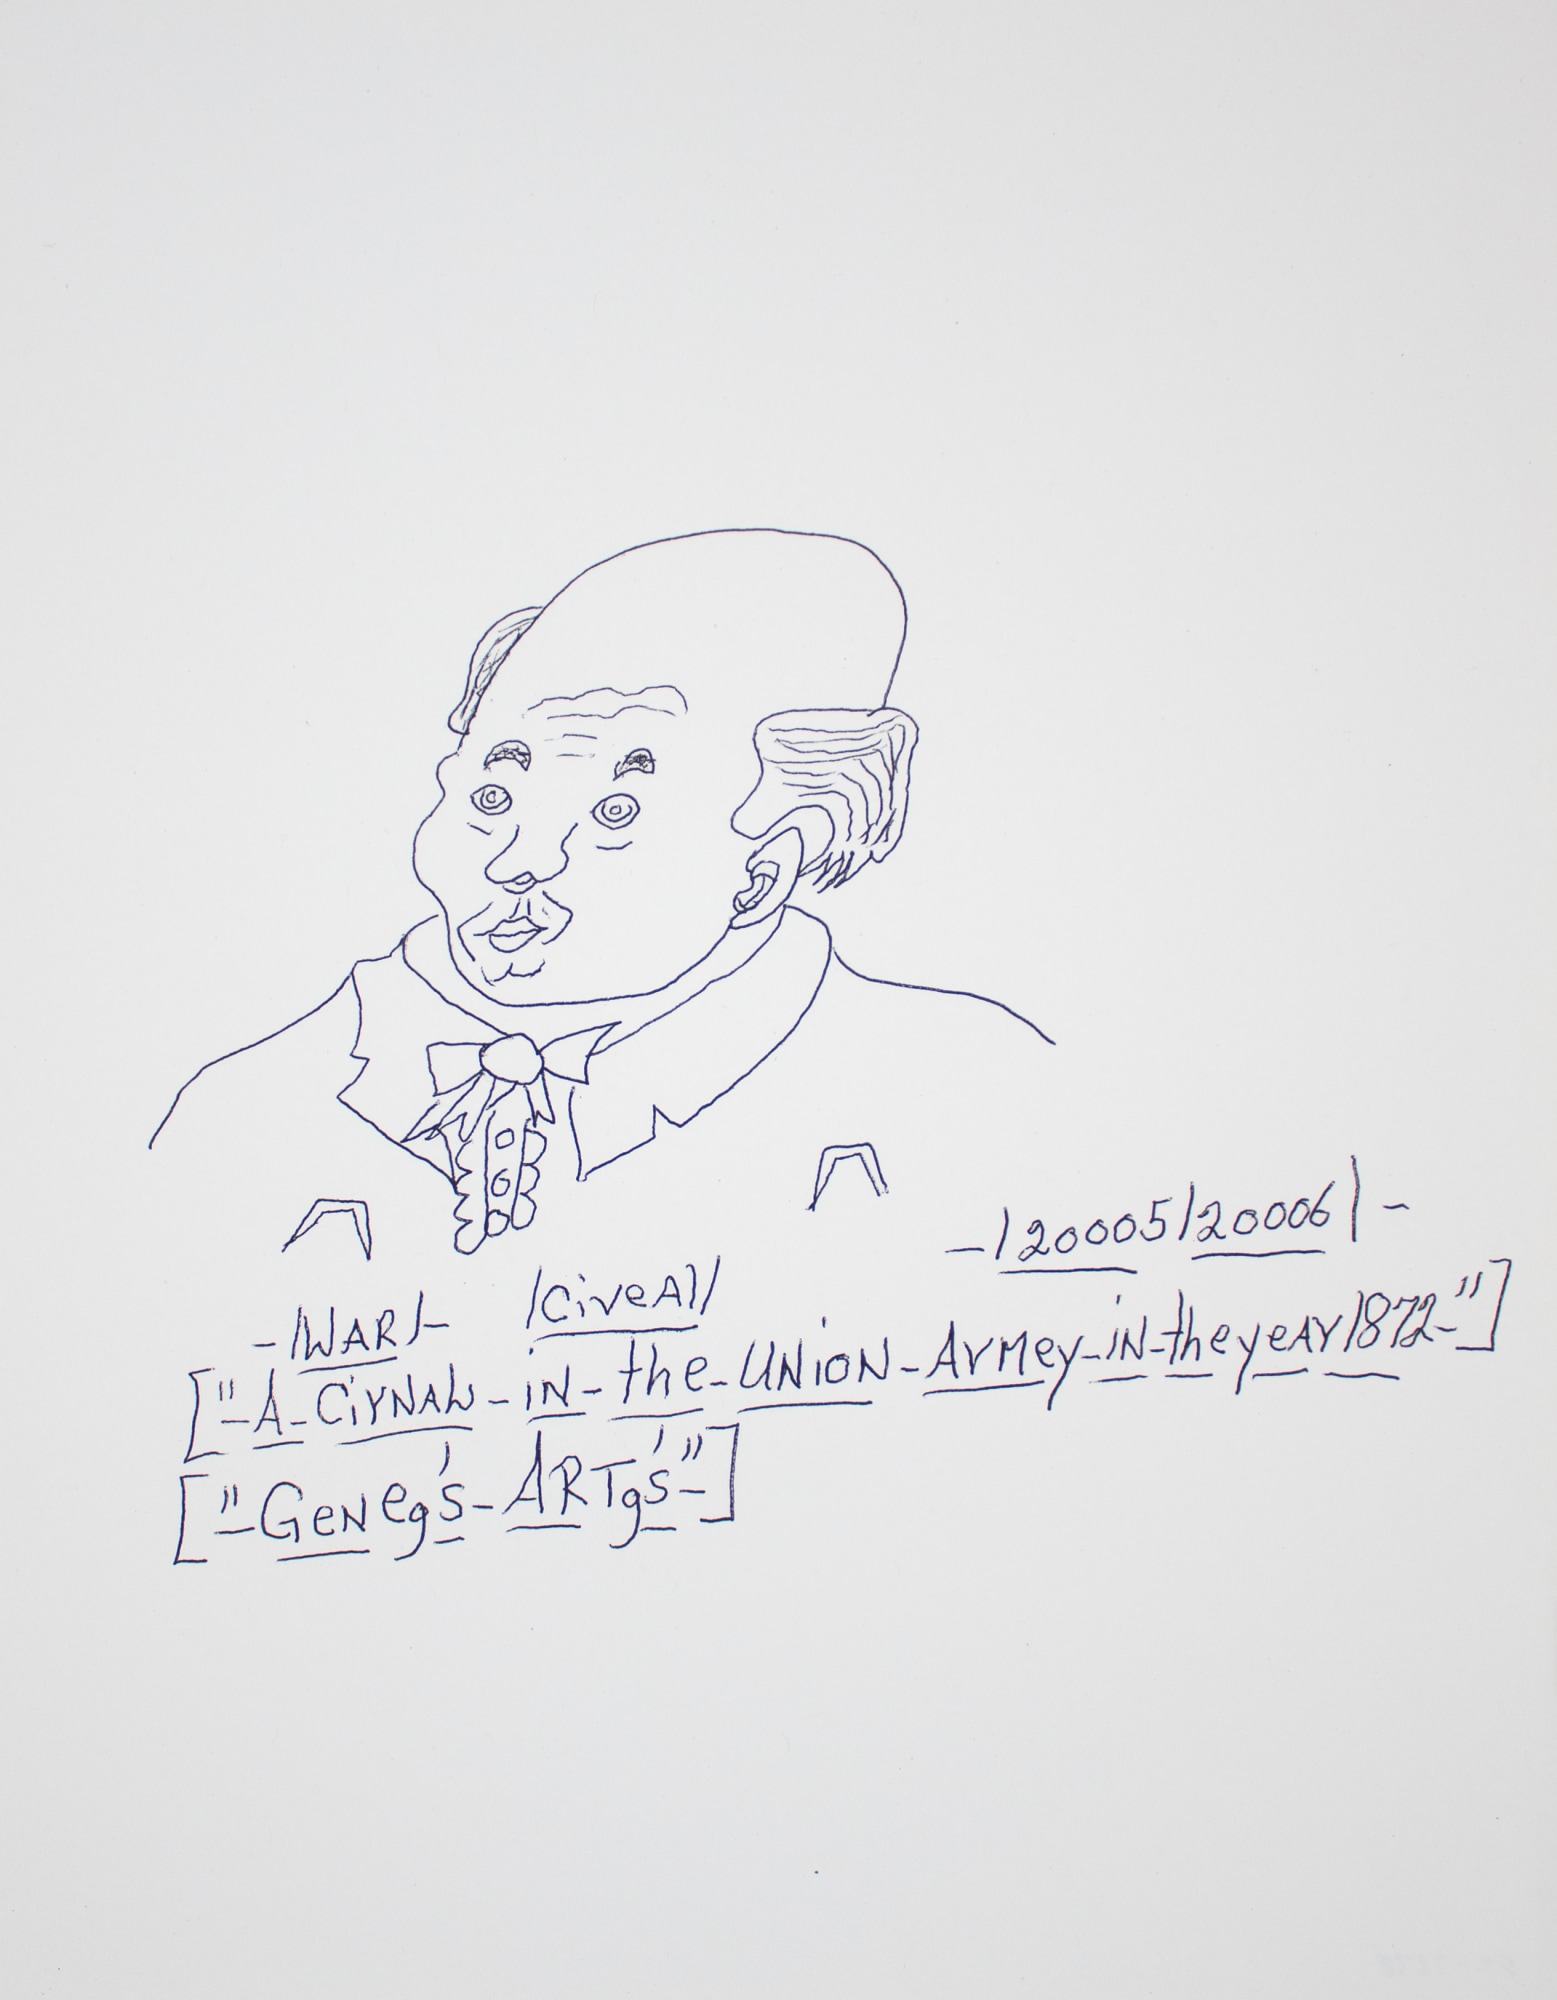 -/20005/20006/-
-/WAR/- /CiveAl/
["-A-CirNAL-iN-the-UNiON-ArMey-iN-the yeAr 1872-"]
["-GeNeg's-ARTg's"-]